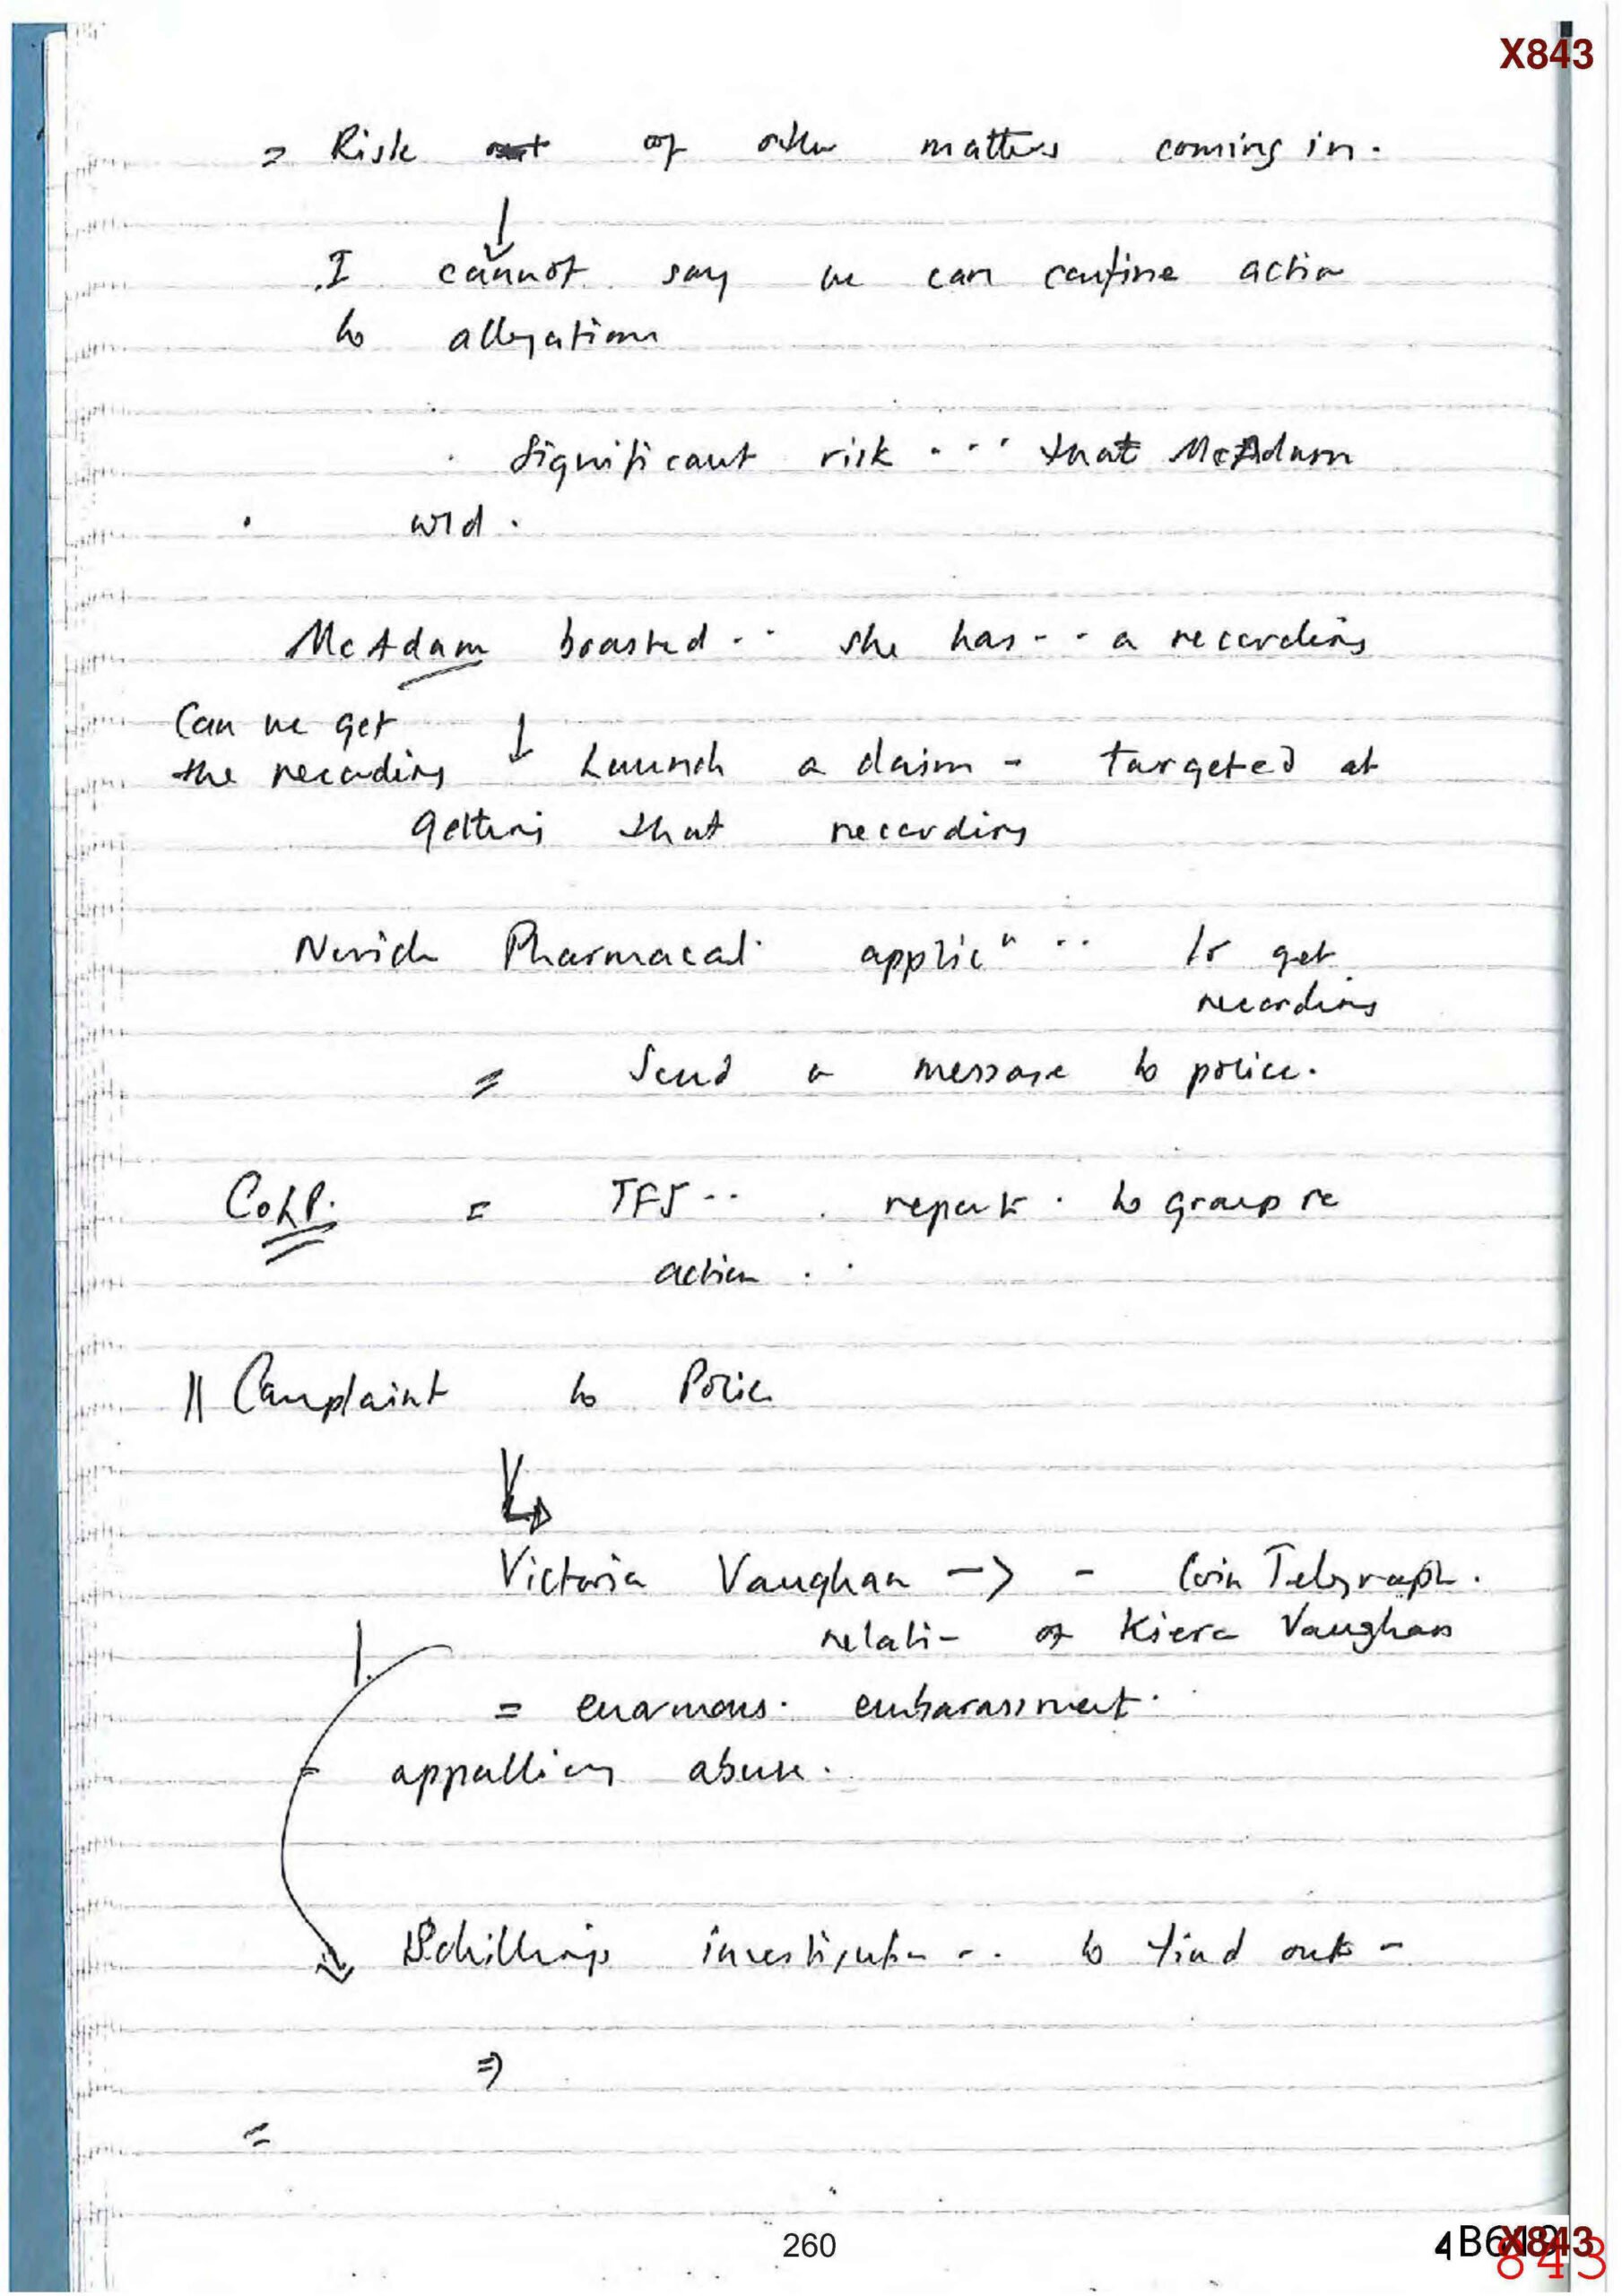 X843
= Risk of other matters coming in.
I cannot say we can confine action
to allegations
Significant risk ... that McAdam
wld.
McAdam boasted .. she has - - a recording
Can we get
the recording ↓ Launch a claim - targeted at
getting that recording
Norwich Pharmacal applicⁿ .. to get
recording
= Send a message to police.
CoLP. = TFS .. report to group re
action . .
|| Complaint to Police
Victoria Vaughan -> - Coin Telegraph.
relati- of Kiera Vaughan
= enormous embarassment.
= appalling abuse.
Schillings investigat- .. to find out -
=>
=
260
X843
843